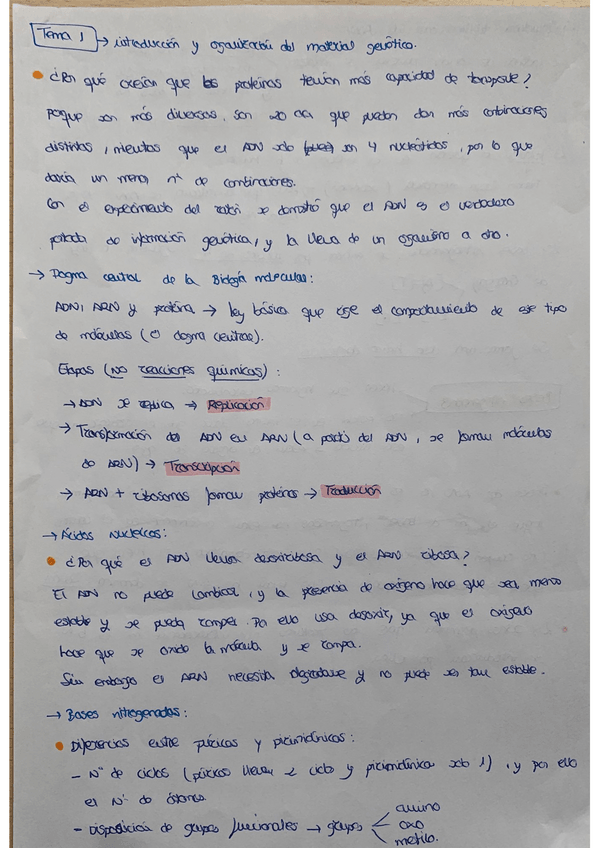 Tema 1 → introducción y organización del material genético.
• ¿Por qué creían que las proteínas tenían más capacidad de transporte?
Porque son más diversas, son 20 aa que pueden dar más combinaciones
distintas, mientras que el ADN solo son 4 nucleótidos, por lo que
daría un menor nº de combinaciones.
Con el experimento del ratón se demostró que el ADN es el verdadero
portador de información genética, y la lleva de un organismo a otro.
→ Dogma central de la Biología molecular:
ADN, ARN y proteína → ley básica que rige el comportamiento de ese tipo
de moléculas (el dogma central).
Etapas (NO reacciones químicas):
→ ADN se replica → Replicación
→ Transformación del ADN en ARN (a partir del ADN, se forman moléculas
de ARN) → Transcripción
→ ARN + ribosomas forman proteínas → Traducción
→ Ácidos Nucleicos:
• ¿Por qué el ADN lleva desoxirribosa y el ARN ribosa?
El ADN no puede cambiar, y la presencia de oxígeno hace que sea menos
estable y se pueda romper. Por ello usa desoxir, ya que el oxígeno
hace que se oxide la molécula y se rompa.
Sin embargo el ARN necesita degradarse y no puede ser tan estable.
→ Bases nitrogenadas:
• Diferencias entre púricas y pirimidínicas:
- Nº de ciclos (púricas llevan 2 ciclo y pirimidínica solo 1), y por ello
el Nº de átomos.
- Disposición de grupos funcionales → grupos
amino
oxo
metilo.